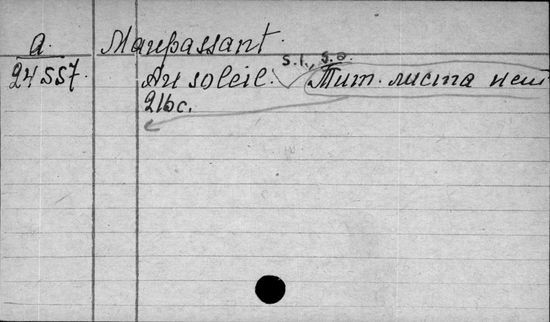 a. Maupassant.
s.l., s.a.
24557. Au soleil. Тит. листа нет
216с.